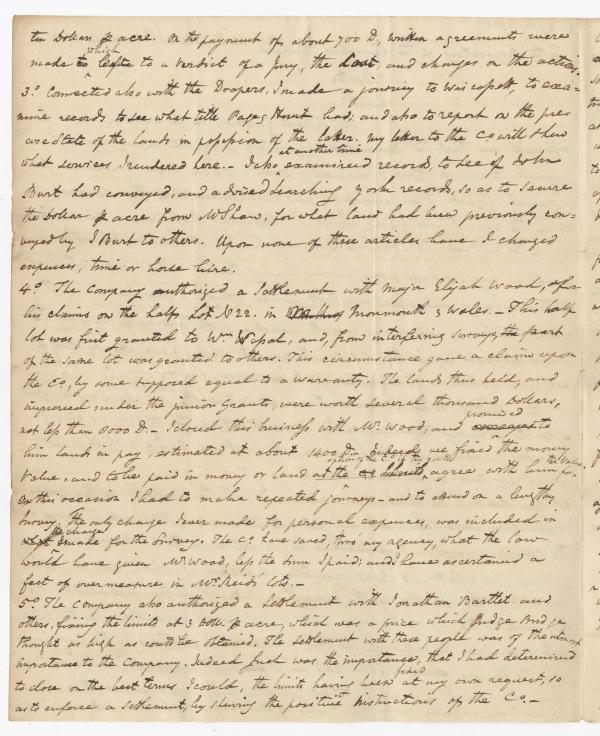 ten Dollars ⅌ acre. On the payment of about 700 D, written agreements were
which
made to leave to a verdict of a Jury, the cost, and charges on the actions.
3.° Connected also with the Drapers, I made a journey to Wiscassett, to exa-
mine records to see what title Page & Hunt had; and also to report on the pre-
cise state of the lands in possession of the latter. My letter to the Co will shew
at another time
what services I rendered here. – I also examined record, to see if John
Burt had conveyed, and advised searching York records, so as to secure
the Dollar ⅌ acre from Mr Shaw, for what land had been previously con-
veyed by J Burt to others. Upon none of these articles have I charged
expences, time or horse hire.
4.° The Company authorized a Settlement with Major Elijah Wood, for
his claims on the half Lot No 22. in Monmouth & Wales. – This half
lot was first granted to Wm Vassal, and, from interferring surveys, part
of the same lot was granted to others. This circumstance gave a claim upon
the Co, by some supposed equal to a warranty. The lands thus held, and
improved under the junior Grants, were worth several thousand Dollars,
not less than 8000 D. – I closed this business with Mr. Wood, and
promised
him lands in pay, estimated at about 1400 D. Indeed we fixed the money
option of the Co
value, and to be paid in money or land at the agree with him
On this occasion I had to make repeated journeys – and to attend on a lengthy
Survey. The only charge I ever made for personal expences, was included in
the charge
made for the Survey. The Co have saved, thro' my agency, what the law
would have given Mr. Wood, less the sum I paid; and I have ascertained a
fact of overmeasure in Mr Reids' lots. –
5.° The Company also authorized a Settlement with Jonathan Bartlet and
others, fixing the limits at 3 Doll. ⅌ acre, which was a price which Judge Bridge
thought as high as could be obtained. The settlement with these people was of the utmost
importance to the Company. Indeed such was the importance, that I had determined
fixed
to close on the best terms I could, the limits having been at my own request, so
as to enforce a settlement, by shewing the positive instructions of the Co. –